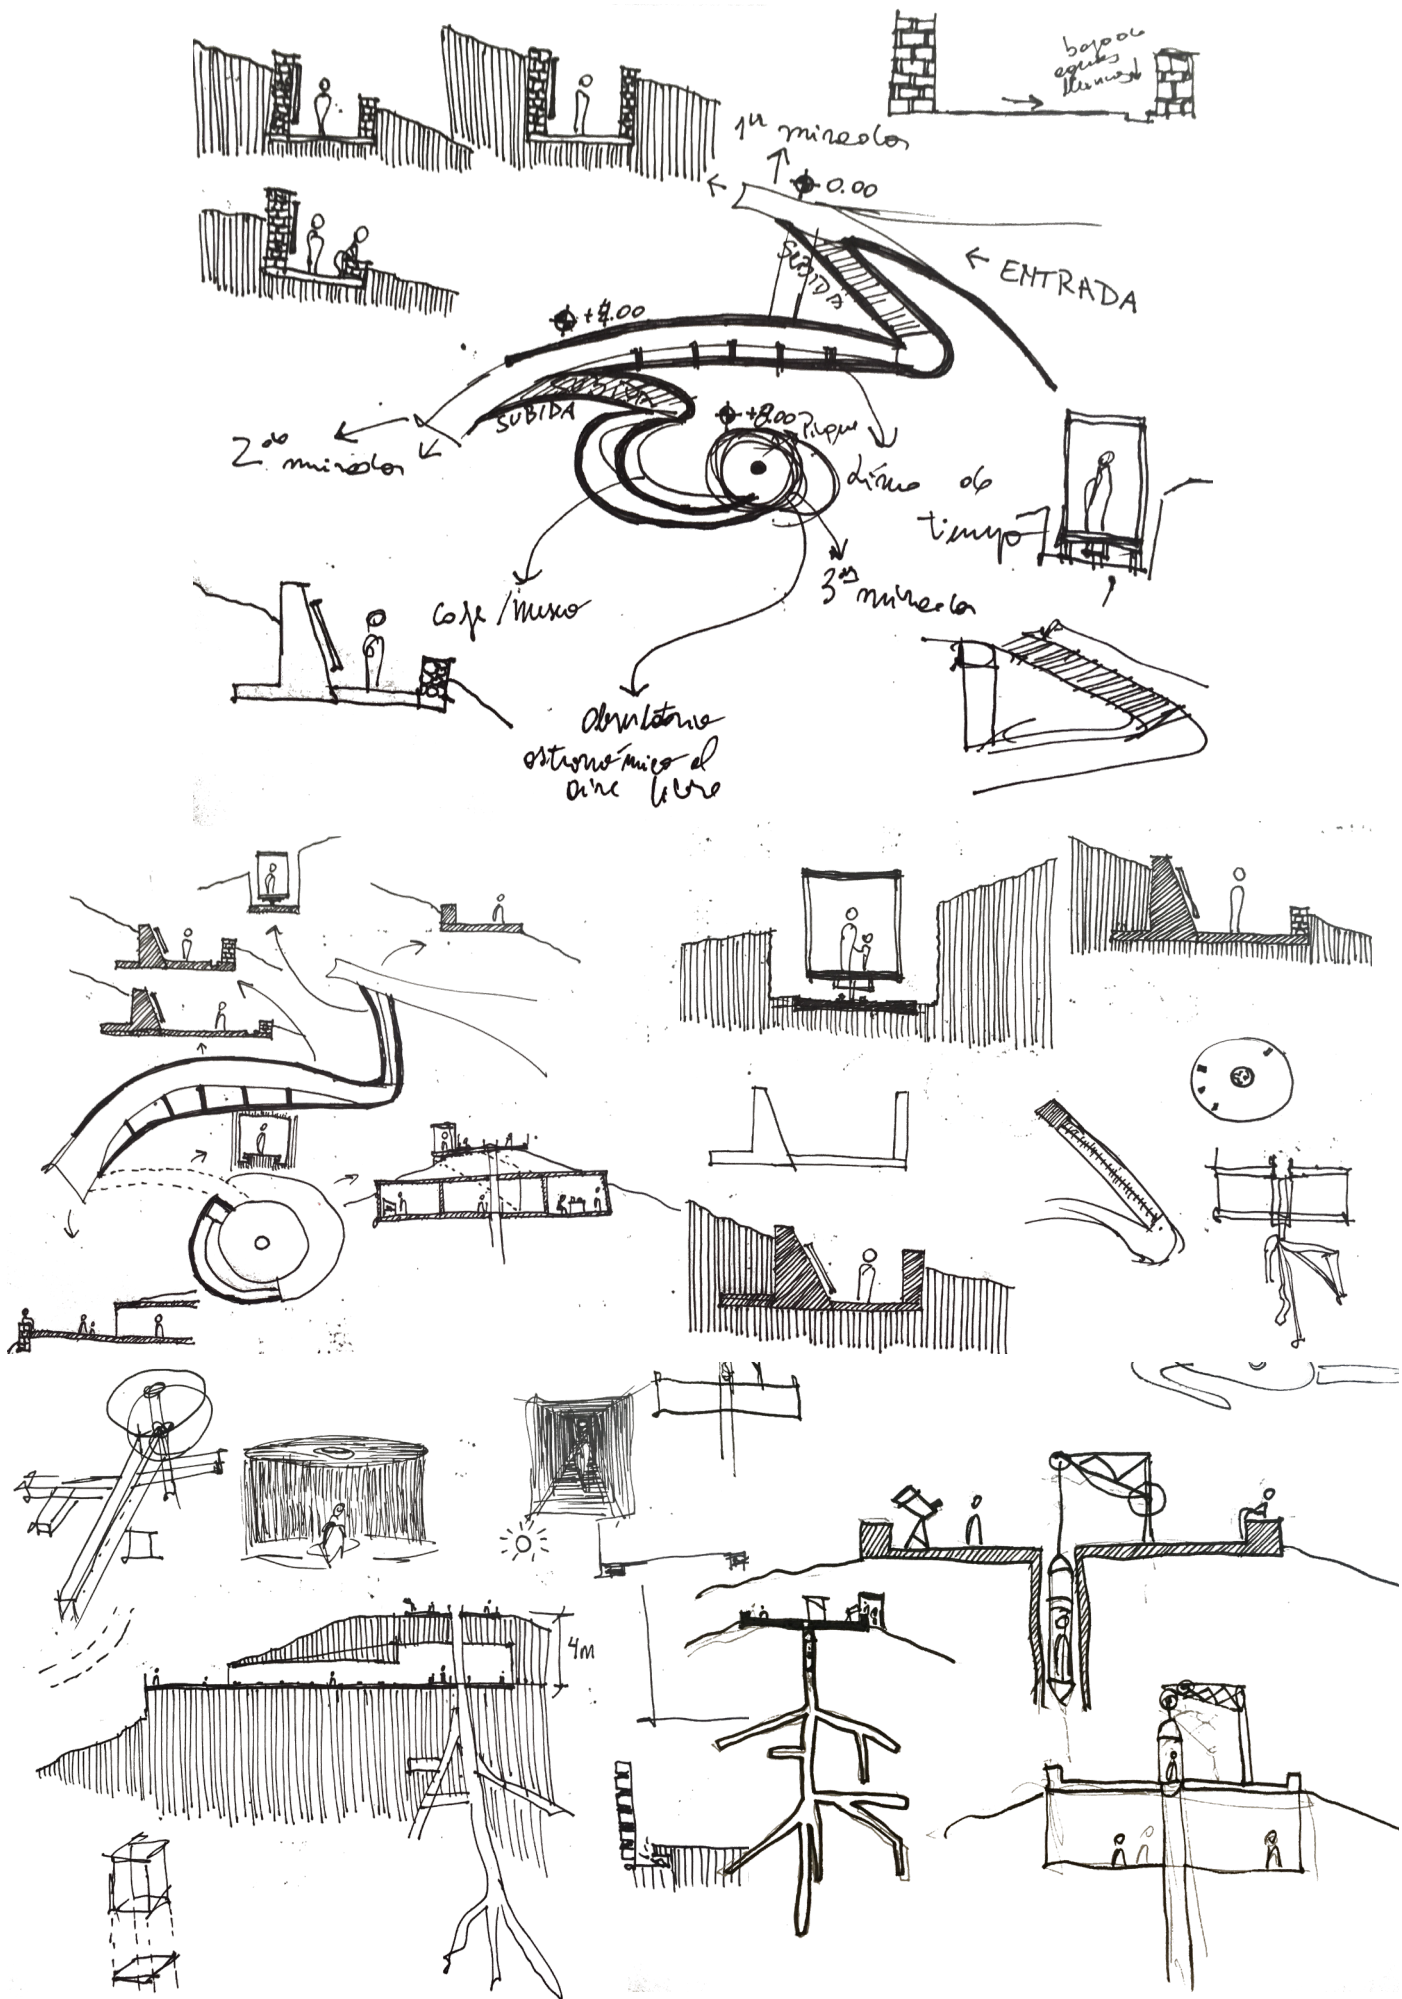 bajada
aguas
lluvias
1er mirador
0.00
SUBIDA
← ENTRADA
+4.00
SUBIDA
+8.00 Pique
2do
mirador
Línea de
tiempo
3er
mirador
Café/Museo
Observatorio
astronómico al
aire libre
4m